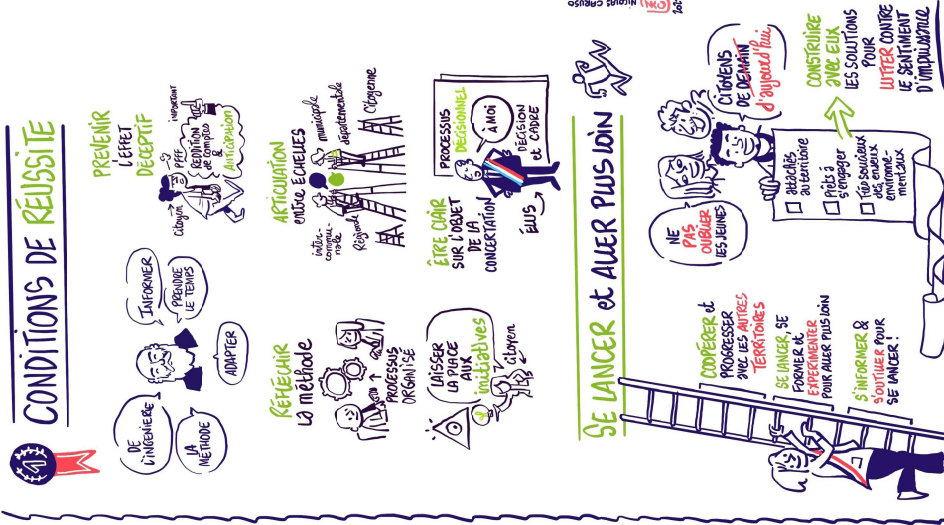 1
CONDITIONS DE RÉUSSITE
DE
L'INGÉNIERIE
LA
MÉTHODE
INFORMER
PRENDRE
LE TEMPS
ADAPTER
PRÉVENIR
L'EFFET
DÉCEPTIF
Citoyen
PFFF
REDDITION
de comptes
&
ANTICIPATION
IMPORTANT
RÉFLÉCHIR
La méthode
PROCESSUS
ORGANISÉ
ARTICULATION
entre ÉCHELLES
inter-
commu-
nale
Régionale
municipale
départementale
Citoyenne
LAISSER
LA PLACE
AUX
initiatives
citoyen
ÊTRE CLAIR
SUR L'OBJET
DE LA
CONCERTATION
ÉLUS
PROCESSUS
DÉCISIONNEL
À MOI
DÉCISION
et CADRE
NICOLAS CARUSO
SE LANCER et ALLER PLUS LOIN
COOPÉRER et
PROGRESSER
avec LES AUTRES
TERRITOIRES
SE LANCER, SE
FORMER et
EXPÉRIMENTER
POUR ALLER PLUS LOIN
S'INFORMER &
S'OUTILLER POUR
SE LANCER !
NE
PAS
OUBLIER
LES JEUNES
CITOYENS
DE DEMAIN
d'aujourd'hui
attachés
au territoire
Prêts à
s'engager
Très soucieux
des enjeux
environne-
mentaux
CONSTRUIRE
avec EUX
LES SOLUTIONS
POUR
LUTTER CONTRE
LE SENTIMENT
D'impuissance